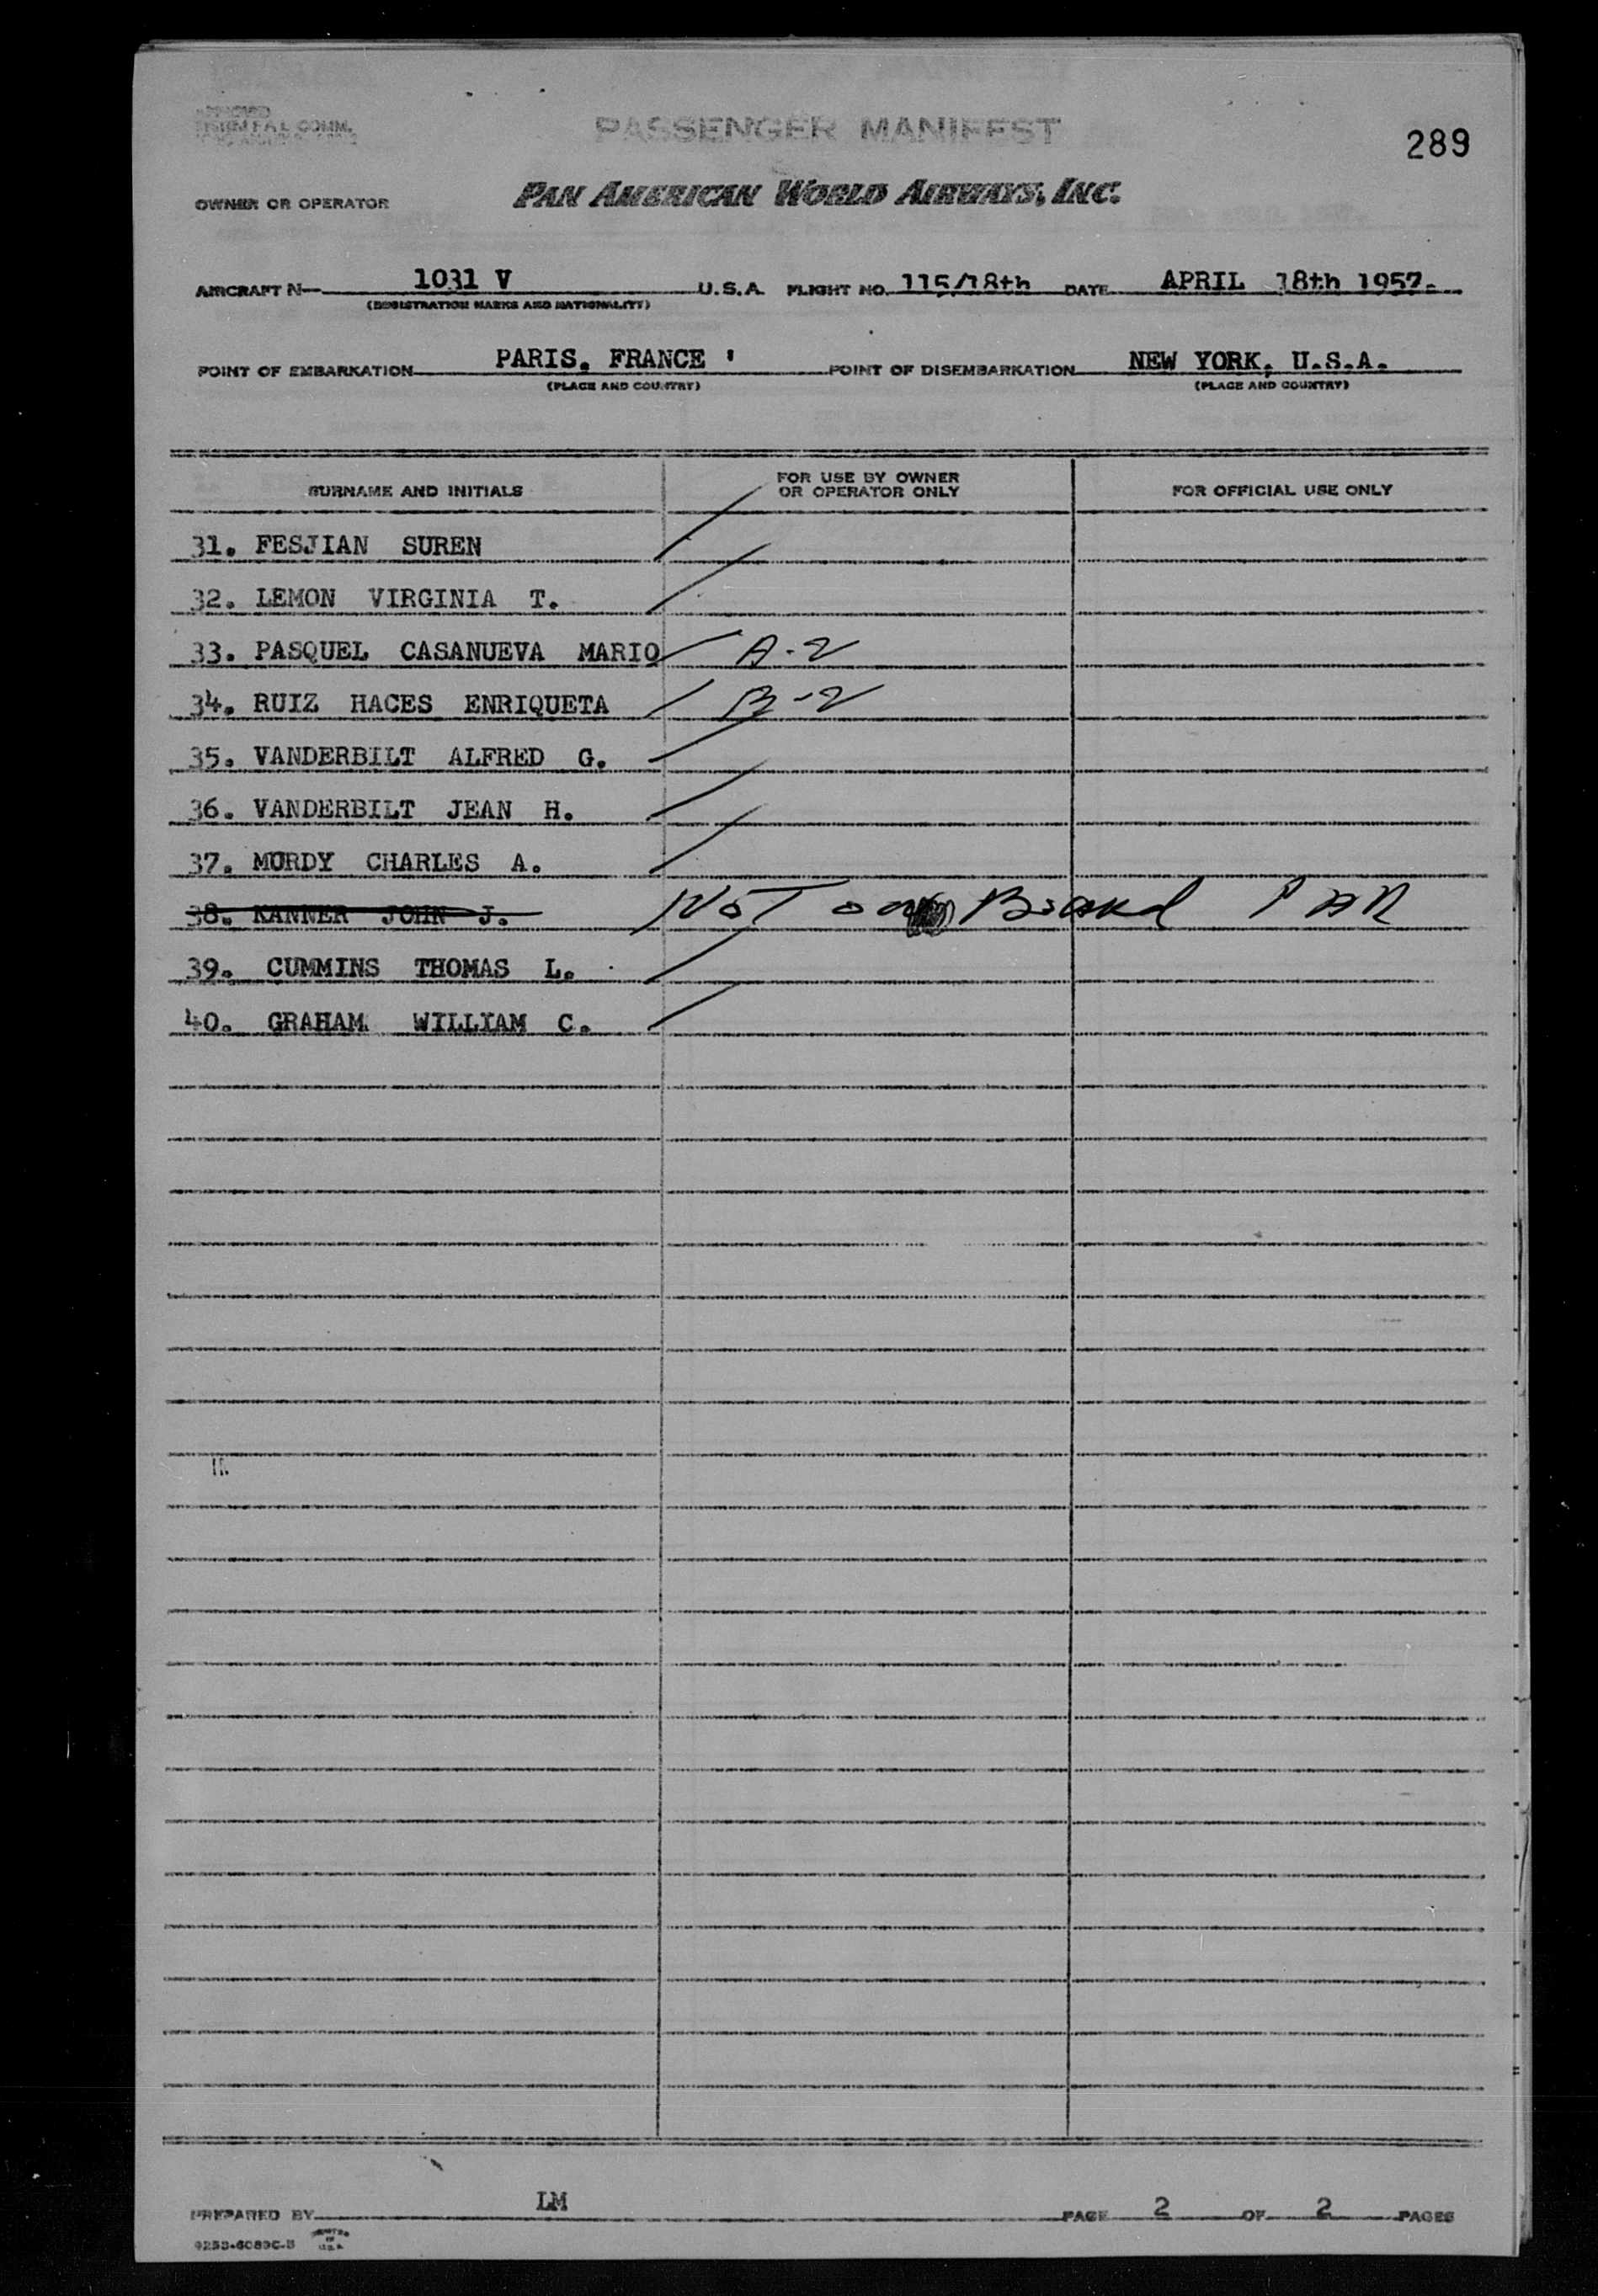 PASSENGER MANIFEST
289
OWNER OR OPERATOR PAN AMERICAN WORLD AIRWAYS, INC.
AIRCRAFT N— 1031 V U.S.A. FLIGHT NO. 115/18th DATE APRIL 18th 1957.
(REGISTRATION MARKS AND NATIONALITY)
POINT OF EMBARKATION PARIS. FRANCE ' POINT OF DISEMBARKATION NEW YORK, U.S.A.
(PLACE AND COUNTRY) (PLACE AND COUNTRY)
SURNAME AND INITIALS FOR USE BY OWNER OR OPERATOR ONLY FOR OFFICIAL USE ONLY
31. FESJIAN SUREN
32. LEMON VIRGINIA T.
33. PASQUEL CASANUEVA MARIO A-2
34. RUIZ HACES ENRIQUETA B-2
35. VANDERBILT ALFRED G.
36. VANDERBILT JEAN H.
37. MORDY CHARLES A.
38. KANNER JOHN J. NOT on Board PAR
39. CUMMINS THOMAS L.
40. GRAHAM WILLIAM C.
PREPARED BY LM PAGE 2 OF 2 PAGES